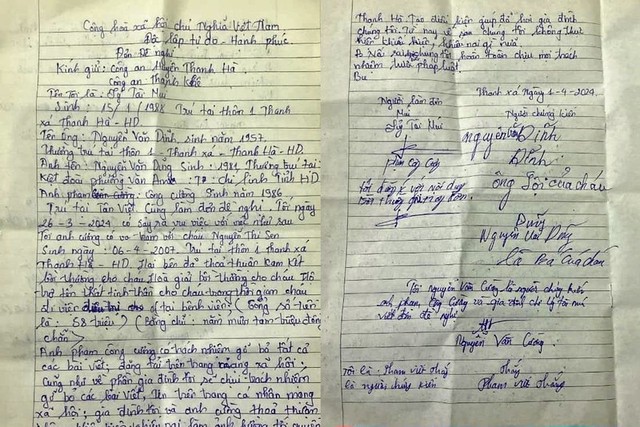 Cộng hoà xã hội chủ Nghĩa Việt Nam
Độc lập tự do - Hạnh phúc
Đơn Đề nghị
Kính gửi: Công an Huyện Thanh Hà
Công an Thanh
Tên Tôi là: Lý Tài Múi
Sinh: 15/1/1988 Trú tại thôn 1 Thanh
xá Thanh Hà - HD.
Tên ông: Nguyễn Văn Dĩnh, sinh năm 1957
Thường trú tại thôn 1 - Thanh xá - Thanh Hà - HD.
Anh tên: Nguyễn Văn Dũng Sinh: 1981 Thường trú tại:
phường văn An Chí linh Tỉnh HD
Anh phạm công cường Sinh năm 1986
Trú tại Tân Việt. Cùng làm đơn đề nghị. Tối ngày
26-3-2024 có sảy ra vụ việc với
Tôi anh cường có va chạm với cháu Nguyễn Thị Sen
Sinh ngày: 06-4-2007. Trú tại thôn 1 thanh xá
Thanh Hà - HD. Hai bên đã thoả thuận Kam Kết
bồi thường cho cháu Hoà giải bồi thường cho cháu
trợ tổn thất tinh thần cho cháu trong thời gian cháu
tại bệnh viện) (Tổng số tiền
là: 58 triệu) (Bằng chữ: năm mươi tám triệu đồng
chẵn)
Anh phạm công cường có trách nhiệm gỡ bỏ Tất cả
các bài viết; đăng tải trên trang mạng xã hội;
cũng như về phần gia đình tôi sẽ chịu trách nhiệm
gỡ bỏ các bài viết, trên trang cá nhân mạng
xã hội; gia đình tôi và anh cường thoả thuận
Thanh Hà Tạo điều kiện giúp đỡ hai gia đình
chúng tôi. Từ nay về sau chúng tôi không Thưa
kiện khiếu kiện, khiếu nại gì nữa.
chúng tôi hoàn toàn chịu mọi trách
nhiệm trước pháp luật.
Thanh xá ngày 1-4-2024.
Người làm đơn
Múi
Lý Tài Múi
Người chứng kiến
nguyễn văn Dĩnh
Dĩnh
ông Nội của cháu
Dũng
Nguyễn Văn Dũng
là Bố của cháu
Tôi nguyễn Văn Cường là người chứng kiến
anh phạm Công Cường và gia đình chị Lý tài múi
viết đơn đề nghị
Nguyễn Văn Cường
Tôi là: Phạm viết Thắng
là người chứng kiến
Phạm viết Thắng